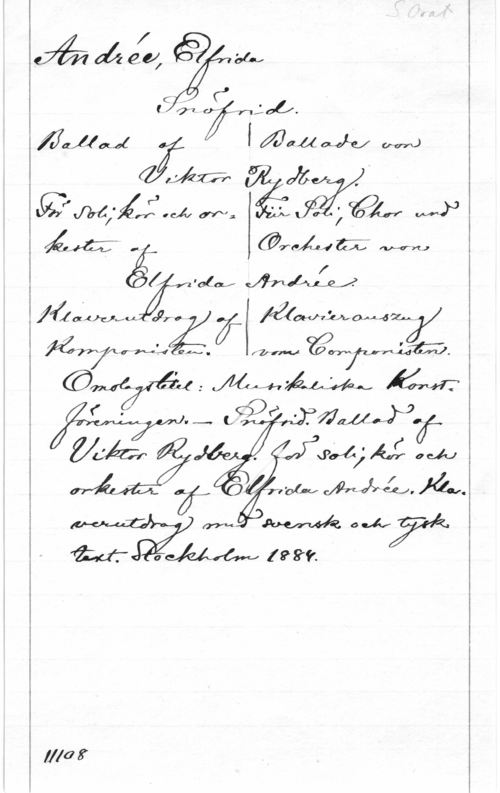 S Orat
Andrée, Elfrida
Snöfrid.
Ballad af | Ballade von
Viktor Rydberg.
För soli, kör och or- | Für Soli, Chor und
kester af | Orchester von
Elfrida Andrée.
Klaverutdrag af | Klavierauszug
Komponisten. | vom Componisten.
Omslagstitel: Musikaliska Konst-
föreningen. — Snöfrid. Ballad af
Viktor Rydberg. för soli, kör och
orkester af Elfrida Andrée. Kla-
verutdrag med svensk och tysk
text. Stockholm 1884.
11108